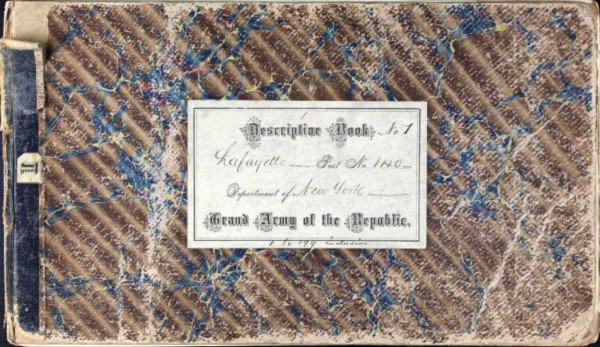 Descriptive Book No 1
Lafayette Post No. 140
Department of New York
Grand Army of the Republic.
1 to 199 inclusive
1